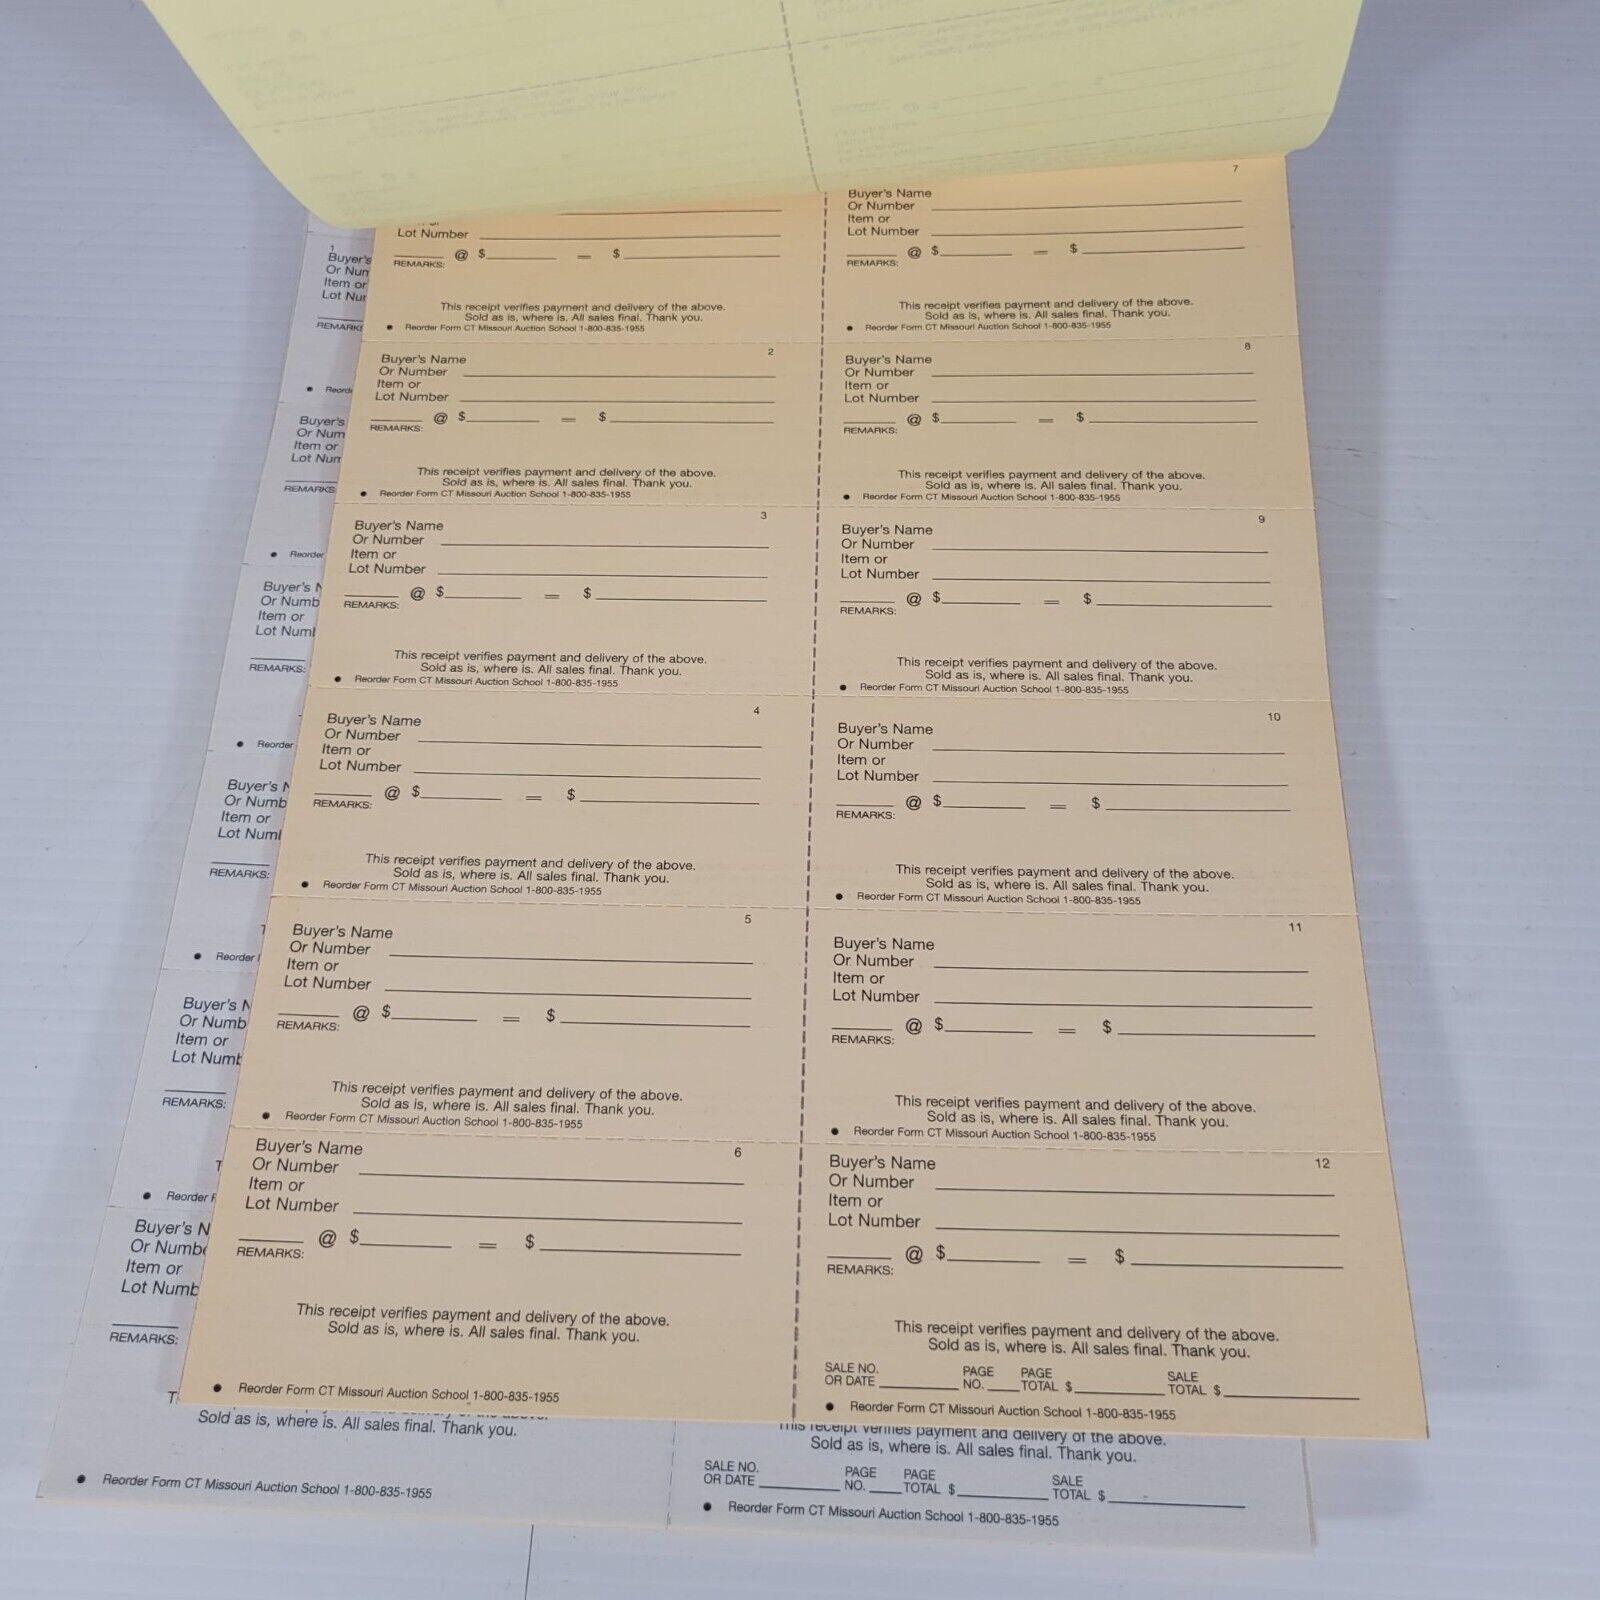 Lot Number
@ $ = $
REMARKS:
This receipt verifies payment and delivery of the above.
Sold as is, where is. All sales final. Thank you.
● Reorder Form CT Missouri Auction School 1-800-835-1955
2
Buyer's Name
Or Number
Item or
Lot Number
@ $ = $
REMARKS:
This receipt verifies payment and delivery of the above.
Sold as is, where is. All sales final. Thank you.
● Reorder Form CT Missouri Auction School 1-800-835-1955
3
Buyer's Name
Or Number
Item or
Lot Number
@ $ = $
REMARKS:
This receipt verifies payment and delivery of the above.
Sold as is, where is. All sales final. Thank you.
● Reorder Form CT Missouri Auction School 1-800-835-1955
4
Buyer's Name
Or Number
Item or
Lot Number
@ $ = $
REMARKS:
This receipt verifies payment and delivery of the above.
Sold as is, where is. All sales final. Thank you.
● Reorder Form CT Missouri Auction School 1-800-835-1955
5
Buyer's Name
Or Number
Item or
Lot Number
@ $ = $
REMARKS:
This receipt verifies payment and delivery of the above.
Sold as is, where is. All sales final. Thank you.
● Reorder Form CT Missouri Auction School 1-800-835-1955
6
Buyer's Name
Or Number
Item or
Lot Number
@ $ = $
REMARKS:
This receipt verifies payment and delivery of the above.
Sold as is, where is. All sales final. Thank you.
● Reorder Form CT Missouri Auction School 1-800-835-1955
7
Buyer's Name
Or Number
Item or
Lot Number
@ $ = $
REMARKS:
This receipt verifies payment and delivery of the above.
Sold as is, where is. All sales final. Thank you.
● Reorder Form CT Missouri Auction School 1-800-835-1955
8
Buyer's Name
Or Number
Item or
Lot Number
@ $ = $
REMARKS:
This receipt verifies payment and delivery of the above.
Sold as is, where is. All sales final. Thank you.
● Reorder Form CT Missouri Auction School 1-800-835-1955
9
Buyer's Name
Or Number
Item or
Lot Number
@ $ = $
REMARKS:
This receipt verifies payment and delivery of the above.
Sold as is, where is. All sales final. Thank you.
● Reorder Form CT Missouri Auction School 1-800-835-1955
10
Buyer's Name
Or Number
Item or
Lot Number
@ $ = $
REMARKS:
This receipt verifies payment and delivery of the above.
Sold as is, where is. All sales final. Thank you.
● Reorder Form CT Missouri Auction School 1-800-835-1955
11
Buyer's Name
Or Number
Item or
Lot Number
@ $ = $
REMARKS:
This receipt verifies payment and delivery of the above.
Sold as is, where is. All sales final. Thank you.
● Reorder Form CT Missouri Auction School 1-800-835-1955
12
Buyer's Name
Or Number
Item or
Lot Number
@ $ = $
REMARKS:
This receipt verifies payment and delivery of the above.
Sold as is, where is. All sales final. Thank you.
SALE NO. PAGE PAGE SALE
OR DATE NO. TOTAL $ TOTAL $
● Reorder Form CT Missouri Auction School 1-800-835-1955
1
Buyer's
Or
Item or
Lot
● 
Buyer's
Or
Item or
Lot
REMARKS
● Reorder
Buyer's
Or
Item or
Lot
REMARKS:
● Reorder
Buyer's
Or
Item or
Lot
REMARKS:
● Reorder
Buyer's
Or
Item or
Lot
REMARKS:
● Reorder
Buyer's
Or
Item or
Lot
REMARKS:
Sold as is, where is. All sales final. Thank you.
● Reorder Form CT Missouri Auction School 1-800-835-1955
This receipt verifies payment and delivery of the above.
Sold as is, where is. All sales final. Thank you.
SALE NO. PAGE PAGE SALE
OR DATE NO. TOTAL $ TOTAL $
● Reorder Form CT Missouri Auction School 1-800-835-1955